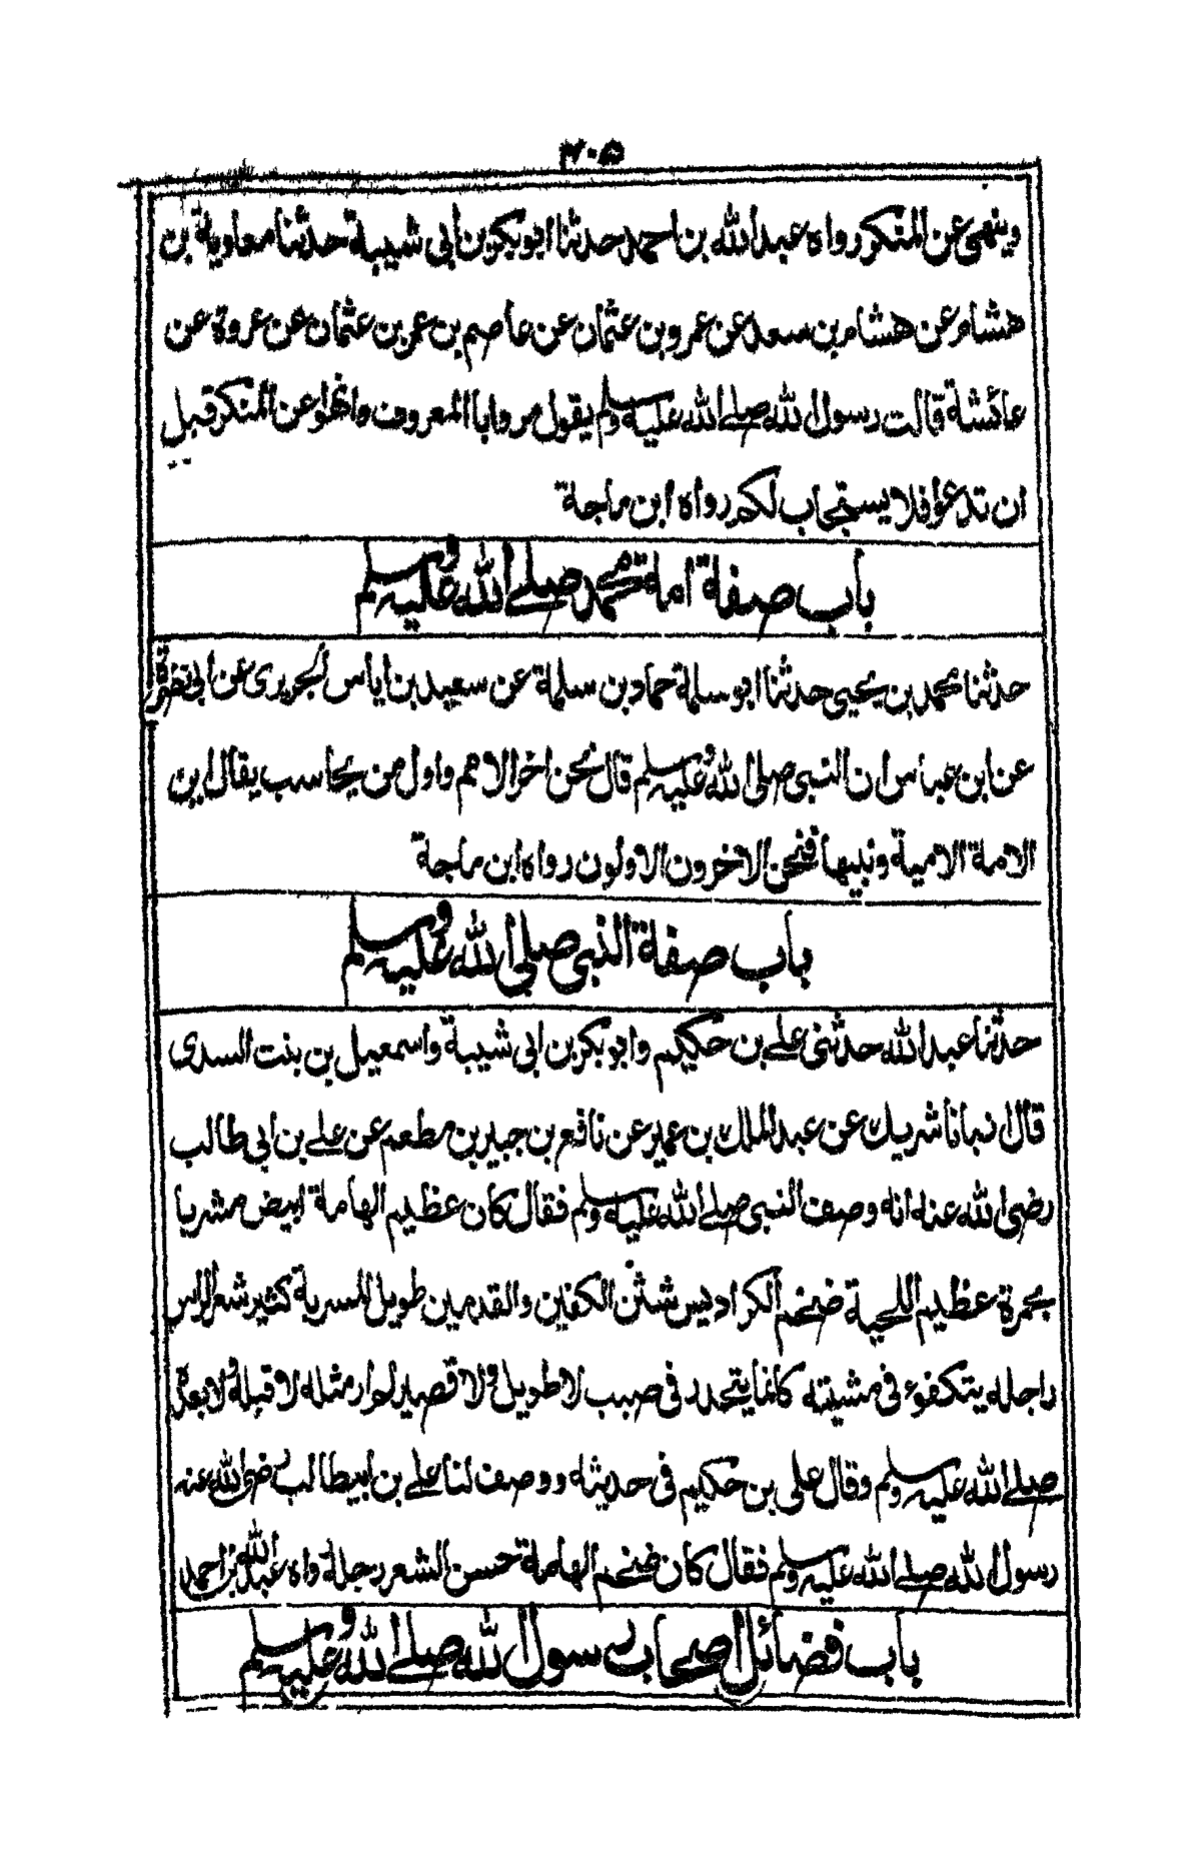 ٣٠٥
وينهى عن المنكر رواه عبد الله بن احمد حدثنا ابو بكر بن أبى شيبة حدثنا معاوية بن
هشام عن هشام بن سعد عن عمرو بن عثمان عن عاصم بن عمر بن عثمان عن عروة عن
عائشة قالت رسول الله صلے الله عليه وسلم يقول مروا بالمعروف وانهوا عن المنكر قبل
ان تدعوا فلا يستجاب لكم رواه ابن ماجة
باب صفة امة محمد صلے الله عليه وسلم
حدثنا محمد بن يحيى حدثنا ابو سلمة حماد بن سلمة عن سعيد بن اياس الجريرى عن ابى نضرة
عن ابن عباس ان النبى صلى الله عليه وسلم قال نحن اخر الامم واول من يحاسب يقال اين
الامة الامية ونبيها فنحن الاخرون الاولون رواه ابن ماجة
باب صفة النبى صلى الله عليه وسلم
حدثنا عبد الله حدثنى علے بن حكيم وابو بكر بن ابى شيبة واسمعيل بن بنت السدى
قال نبانا شريك عن عبد الملك بن عمير عن نافع بن جبير بن مطعم عن علے بن ابى طالب
رضى الله عنه انه وصف النبى صلے الله عليه وسلم فقال كان عظيم الهامة ابيض مشربا
بحمرة عظيم اللحية ضخم الكراديس شثن الكفين والقدمين طويل المسربة كثير شعر الراس
راجله يتكفوء فى مشيته كانما يتحدر فى صبب لا طويل ولا قصير لم ار مثله لا قبله ولا بعده
صلے الله عليه وسلم وقال على بن حكيم فى حديثه ووصف لنا علے بن ابيطالب رضى الله عنه
رسول الله صلے الله عليه وسلم فقال كان ضخم الهامة حسن الشعر رجله رواه عبد الله بن احمد
باب فضائل اصحاب رسول الله صلے الله عليه وسلم